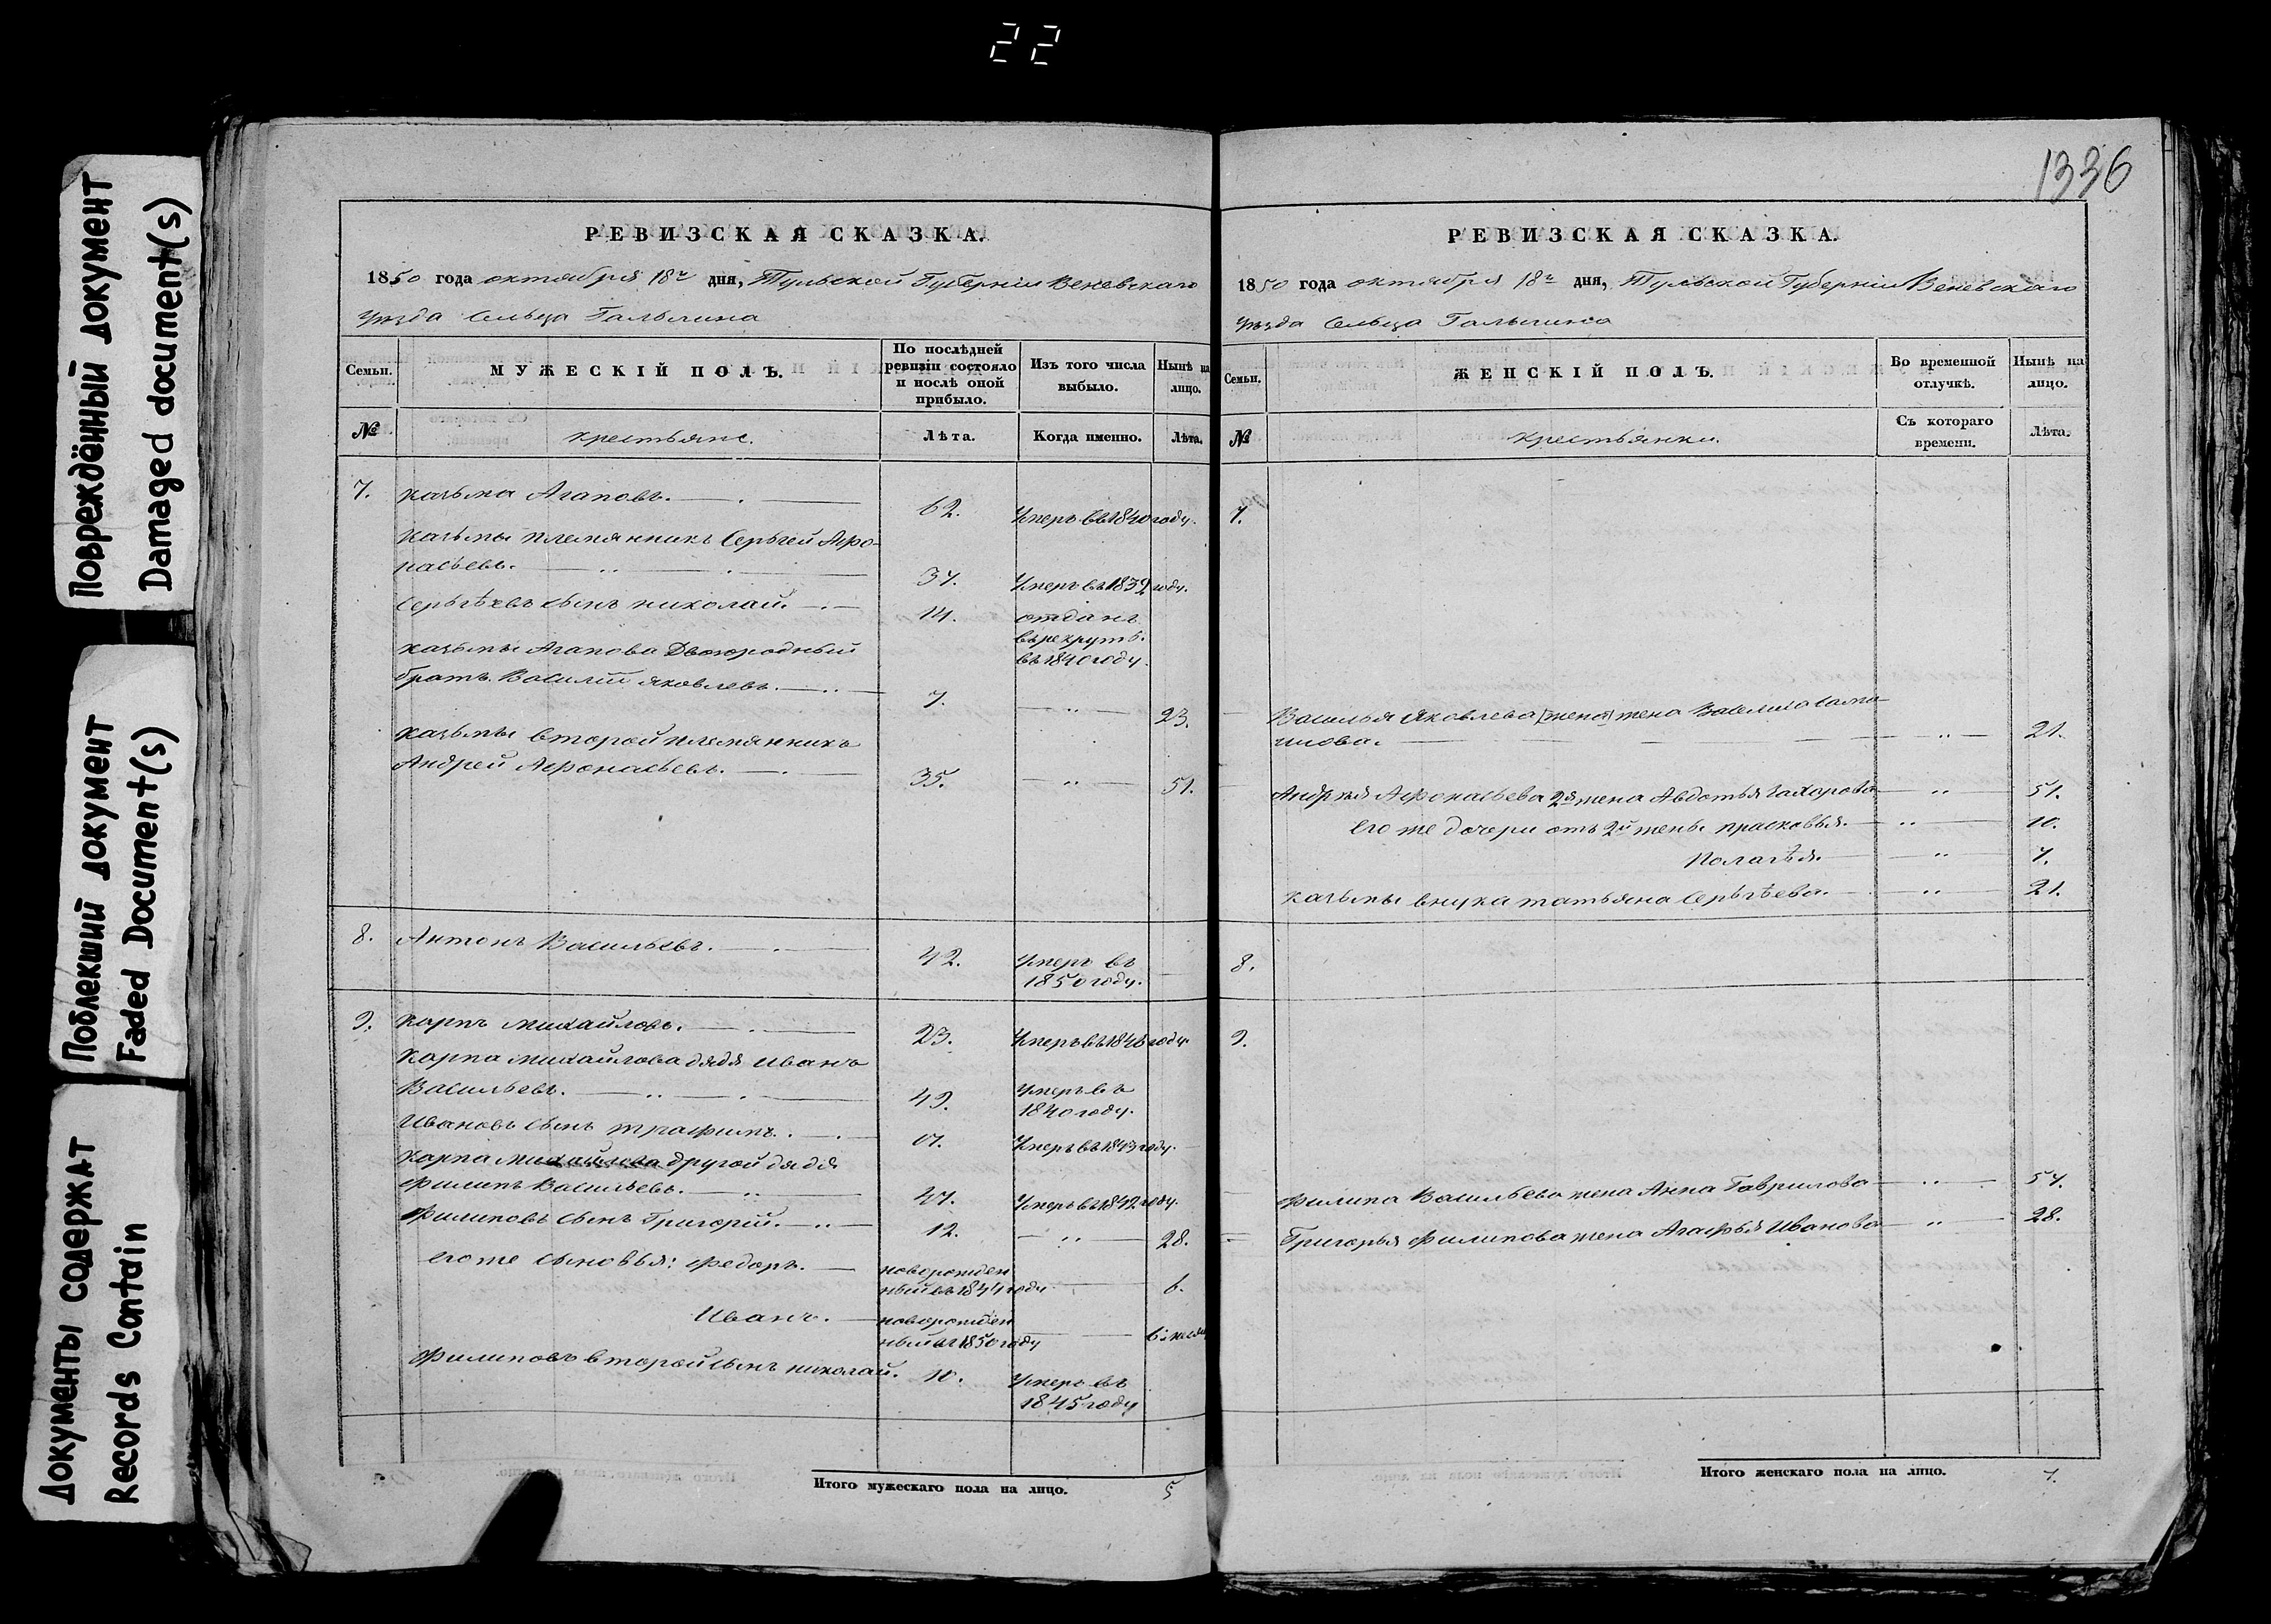 22
Повреждённый документ
Damaged document(s)
Поблекший документ
Faded Document(s)
Документы содержат
Records Contain
РЕВИЗСКАЯ СКАЗКА.
1850 года октября 18го дня, Тульской Губернiи Веневскаго
уѣзда Сельца Галынина
Семьи.
МУЖЕСКІЙ ПОЛЪ.
По послѣдней ревизіи состояло и послѣ оной прибыло.
Изъ того числа выбыло.
Нынѣ на лицо.
№
крестьяне.
Лѣта.
Когда именно.
Лѣта.
7. Казьма Агаповъ. 62. Умеръ въ 1840 году.
Казьмы племянникъ Сергей Афо-
насьевъ. 37. Умеръ въ 1839 году.
Сергѣевъ сынъ николай. 14. отданъ
въ рекруты.
въ 1840 году.
казьмы Агапова Двоюродный
братъ Василiй яковлевъ. 7. 23.
казьмы второй племянникъ
Андрей Афонасьевъ. 35. 51.
8. Антонъ Васильевъ. 42. Умеръ въ
1850 году.
9. карпъ михайловъ. 23. Умеръ въ 1846 году.
карпа михайлова дядя иванъ
Васильевъ. 49. Умеръ въ
1840 году.
Ивановъ сынъ трафимъ. 17. Умеръ въ 1843 году.
карпа михайлова другой дядя
Филипъ Васильевъ. 47. Умеръ въ 1842 году.
Филиповъ сынъ Григорiй. 12. 28.
его же сыновья: Федоръ. новорожден
ный въ 1844 году 6.
Иванъ. новорожден
ный въ 1850 году
Филиповъ второй сынъ николай. 10. Умеръ въ
1845 году
Итого мужескаго пола на лицо. 5
1336
РЕВИЗСКАЯ СКАЗКА.
1850 года октября 18го дня, Тульской Губернiи Веневскаго
уѣзда Сельца Галынина
Семьи.
ЖЕНСКІЙ ПОЛЪ.
Во временной отлучкѣ.
Нынѣ на лицо.
№
крестьянки.
Съ котораго времени.
Лѣта.
7.
Василья Яковлева жена
21.
Андрѣя Афонасьева 2я жена Авдотья Захарова 51.
его же дочери отъ 2й жены прасковья. 10.
Палагѣя. 7.
казьмы внука татьяна Сергѣева. 21.
8.
9.
Филипа Васильева жена Анна Гаврилова 57.
Григорья Филипова жена Агафья Иванова 28.
Итого женскаго пола на лицо. 7.